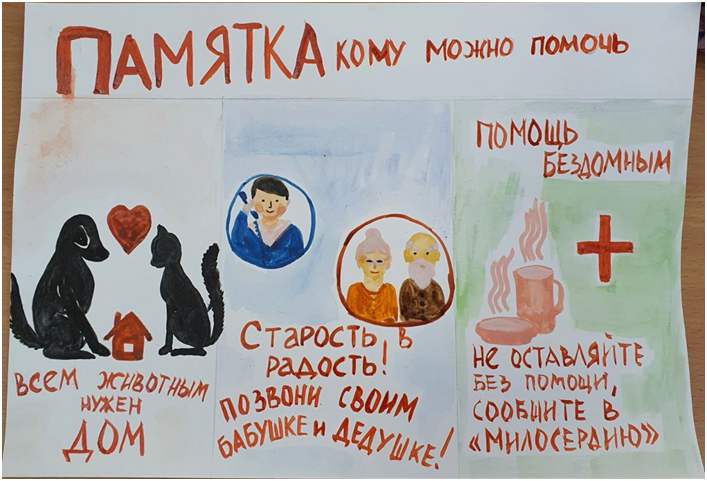 ПАМЯТКА КОМУ МОЖНО ПОМОЧЬ
ВСЕМ ЖИВОТНЫМ
НУЖЕН
ДОМ
СТАРОСТЬ, В
РАДОСТЬ!
ПОЗВОНИ СВОИМ
БАБУШКЕ И ДЕДУШКЕ!
ПОМОЩЬ
БЕЗДОМНЫМ
НЕ ОСТАВЛЯЙТЕ
БЕЗ ПОМОЩИ,
СООБЩИТЕ В
«МИЛОСЕРДИЮ»